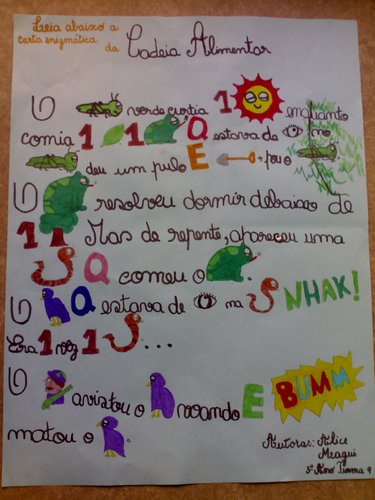 Leia abaixo a
carta enigmática
da Cadeia Alimentar
verde curtia 1 enquanto
comia 1 1 Q estava de no
deu um pulo E + pou o
resolveu dormir debaixo de
1 Mas de repente, apareceu uma
Q comeu o .
Q estava de na NHAK!
Era 1 vez 1 ...
avistou o voando E BUMM
matou o .
Autoras: Alice
3º Ano Turma 9